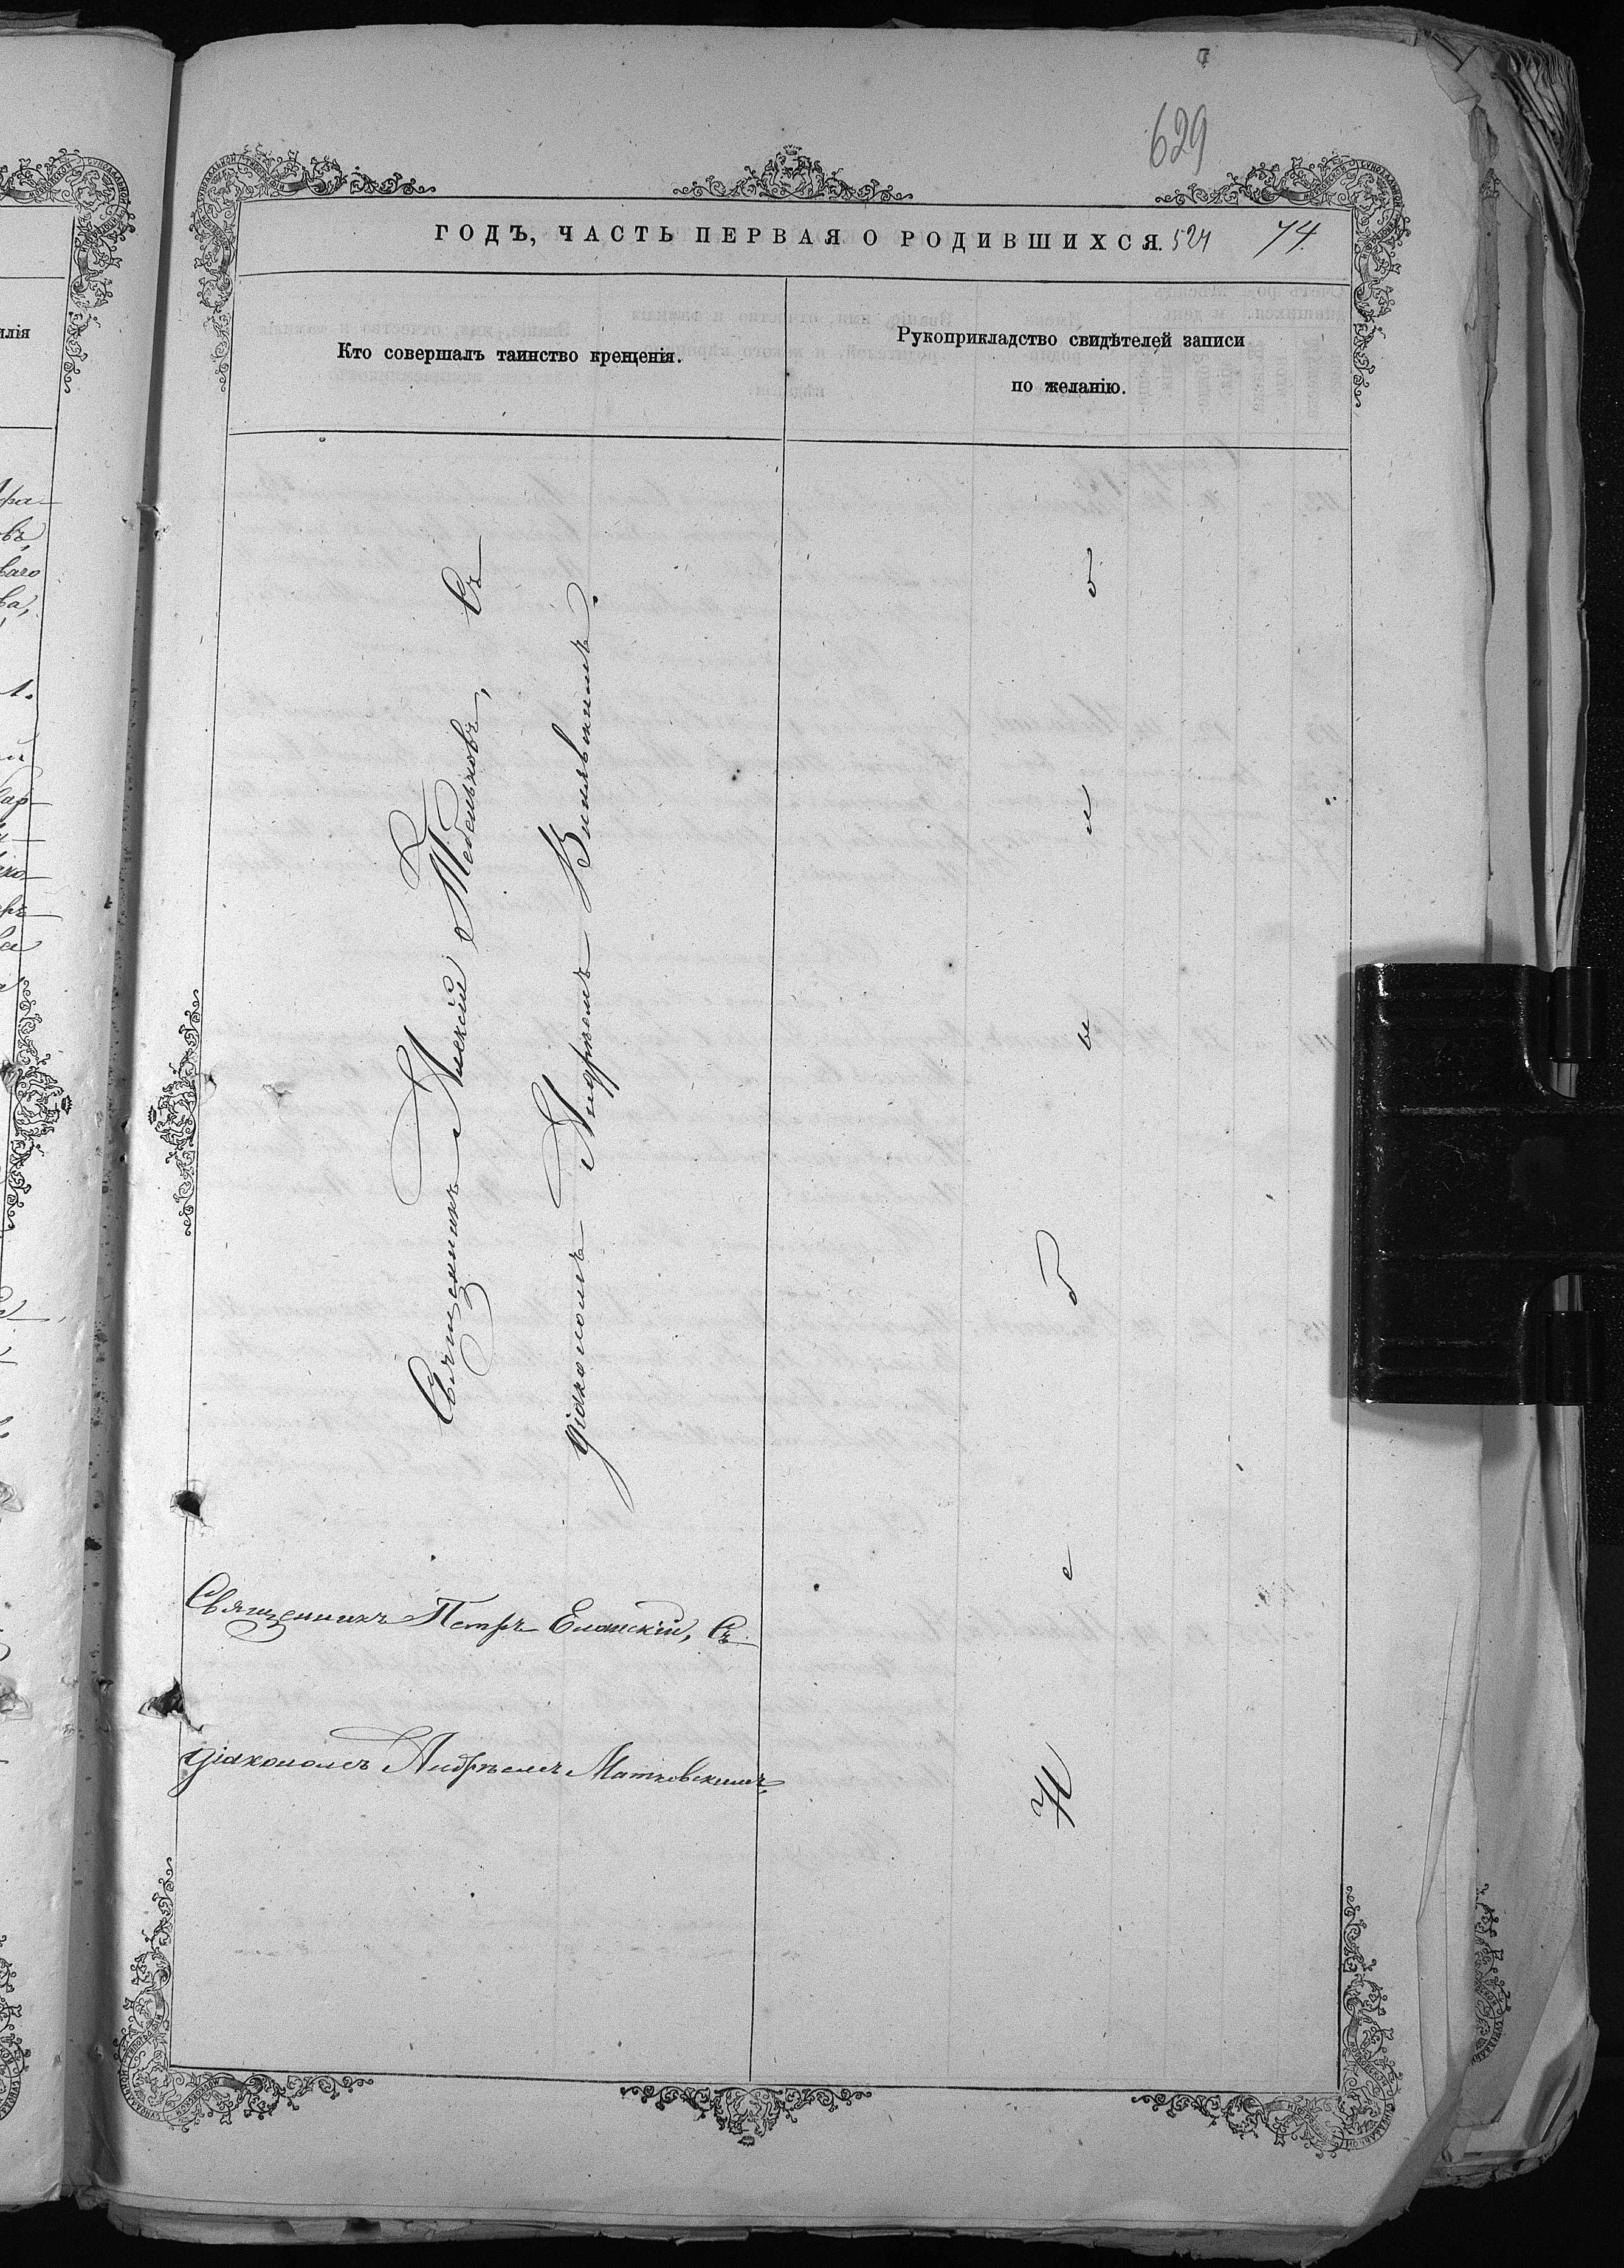 629
ГОДЪ, ЧАСТЬ ПЕРВАЯ О РОДИВШИХСЯ. 524 74.
Кто совершалъ таинство крещенія.
Рукоприкладство свидѣтелей записи
по желанію.
Священникъ Алексій Тебеньковъ, Съ
діакономъ Андреемъ
Священникъ Петръ Еланскій, Съ
діакономъ Андреемъ Матковскимъ.
Не было
илія
ваго
ва,